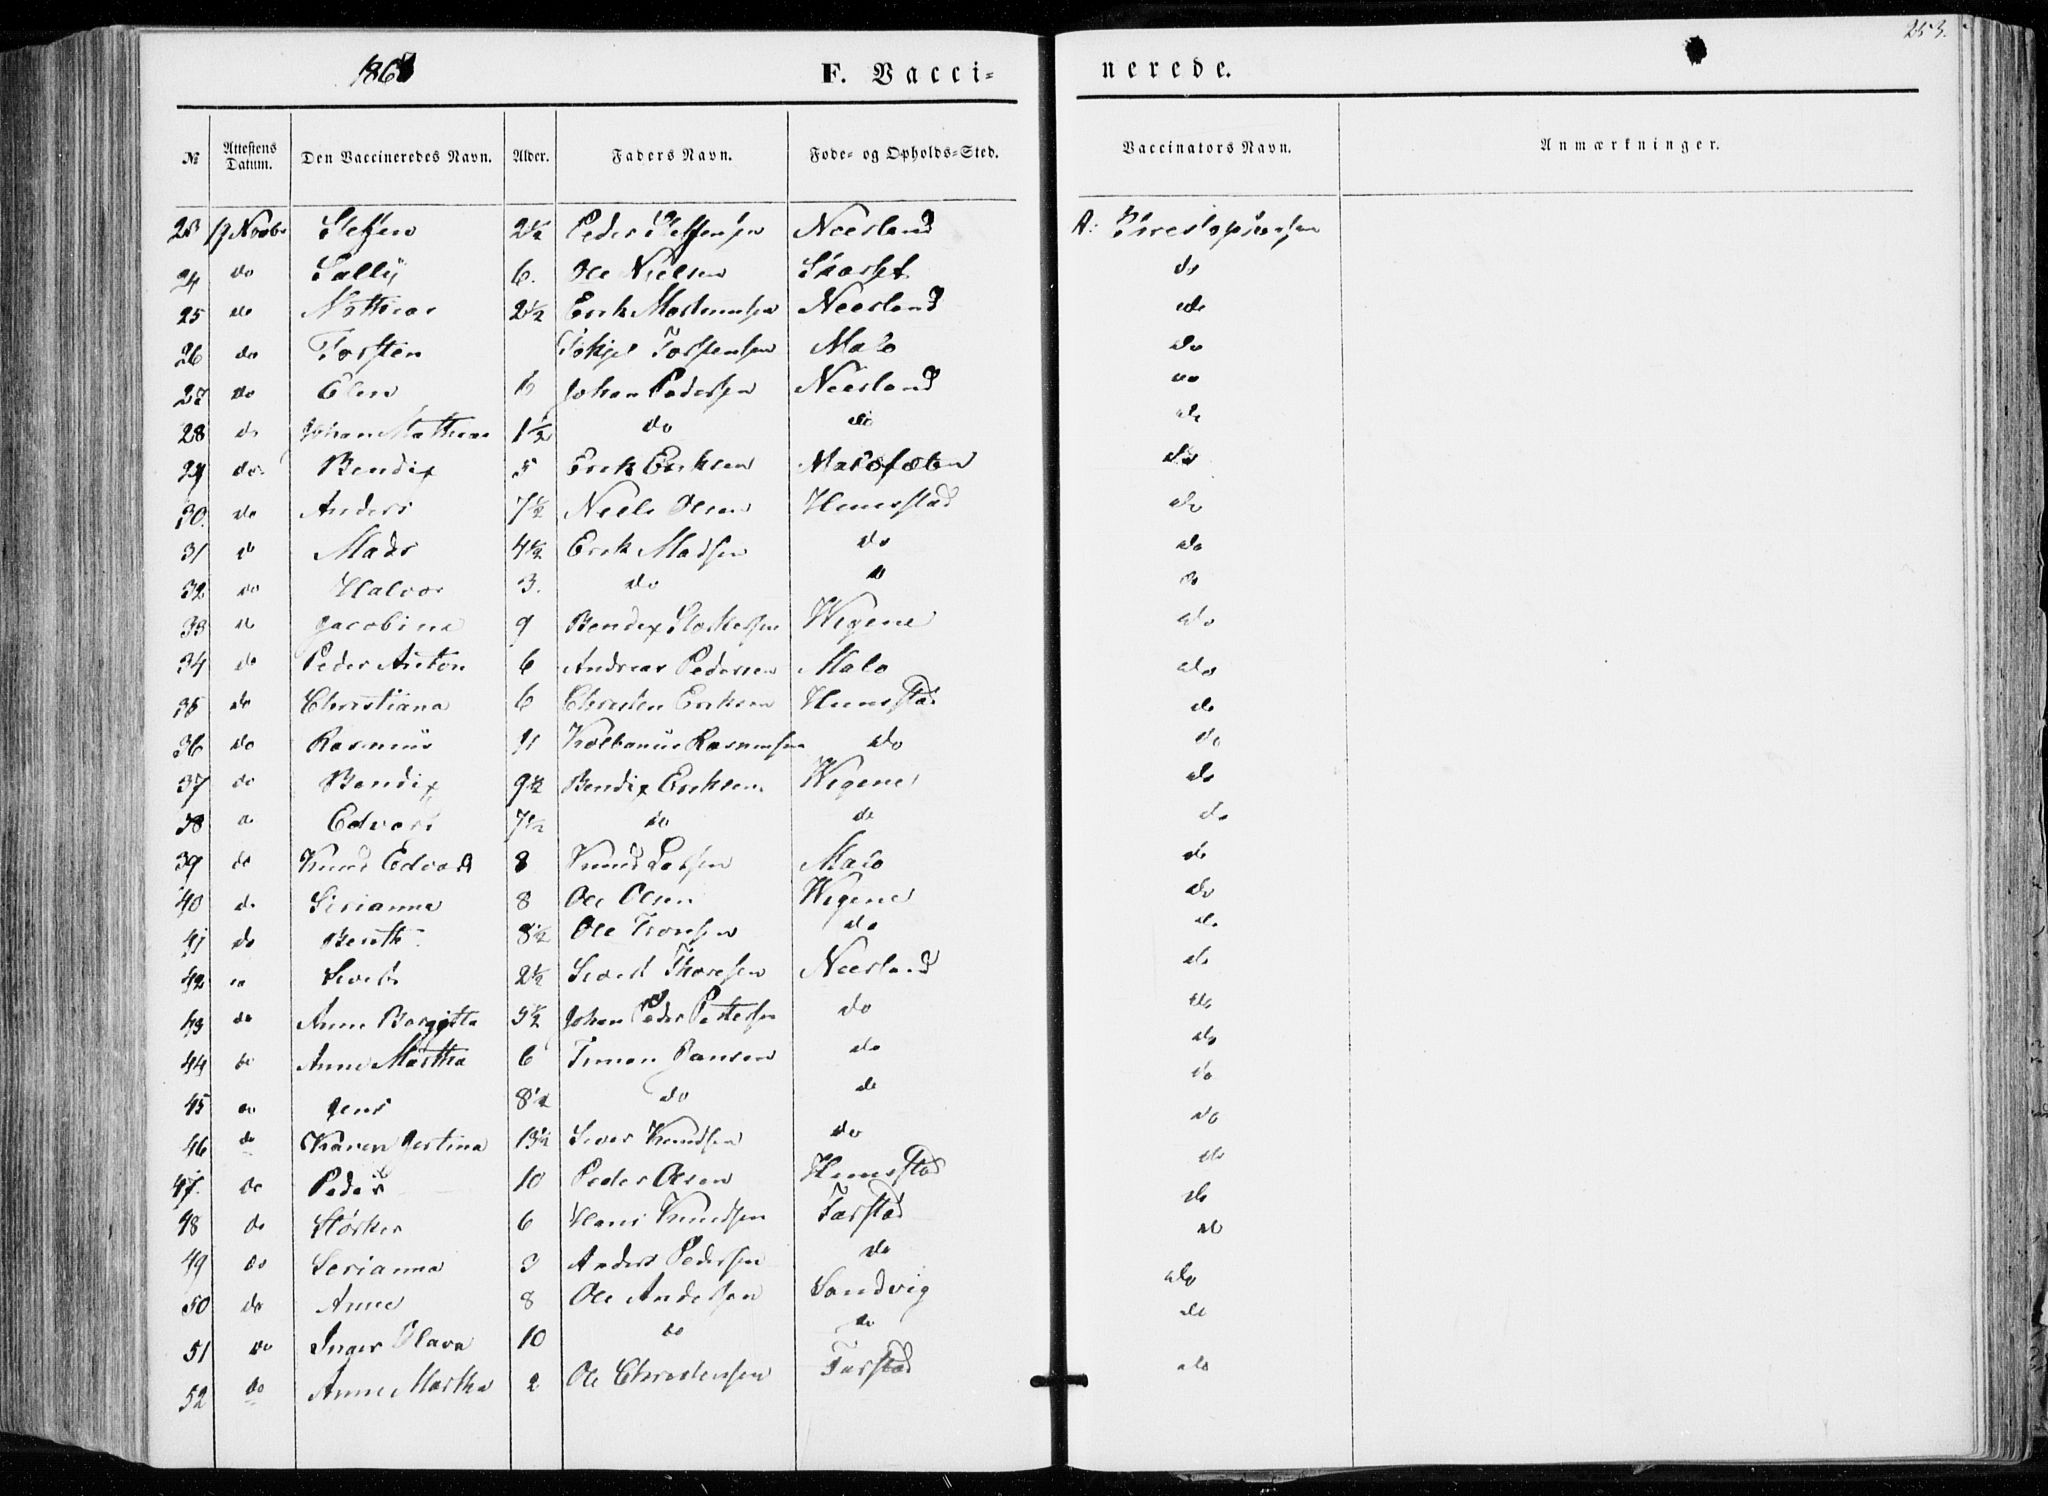 186 F. Vacci- nerede. 253.
№ Attestens Datum. Den Vaccineredes Navn. Alder. Faders Navn. Føde- og Opholds-Sted. Vaccinators Navn. Anmærkninger.
23 19 Novbr Steffen 2½ Peder Steffensen Neerland A:
24 do Sally 6. Ole Nielsen Skarset do
25 do Mathias 2½ Erik Mortensen Neerland do
26 do Torsten Torstensen Malo do
27 do Elen 6 Johan Pedersen Neerland do
28 do Johan Mathias 1½ do do do
29 do Bendix 5 Erik Eriksen do
30. do Anders 7½ Niels Olsen Hemstad do
31 do Mads 4½ Erik Madsen do do
32 do Halvor 3. do do do
33 do Jacobine 9 Bendix Wegene do
34 do Peder Anton 6 Andreas Pedersen Malo do
35 do Christiana 6 Christen Eriksen Hemstad do
36 do Rasmus 11 Kolbanus Rasmussen do do
37 do Bendix 9½ Bendix Eriksen Wegene do
38 do Edvard 7½ do do do
39 do Knud Edvard 8 Knud Malo do
40 do Sirianna 8 Ole Olsen Wegene do
41 do Berith 8½ Ole do do
42 do Sivert 2½ Sivert Thoresen Neerland do
43 do Anne Bergitta 5½ Johan Peder Pettersen do do
44 do Anne Martha 6 Simon Jansen do do
45 do Jens 8½ do do do
46 do Karen Jertina 13½ Siver Knudsen do do
47. do Peder 10 Peder Olsen Hemstad do
48 do Størker 6 Hans Knudsen Farstad do
49 do Serianna 3 Anders Pedersen do do
50 do Anne 8 Ole Andersen Sandvig do
51 do Inger Olava 10 do do do
52 do Anne Martha 2 Ole Christensen Farstad do